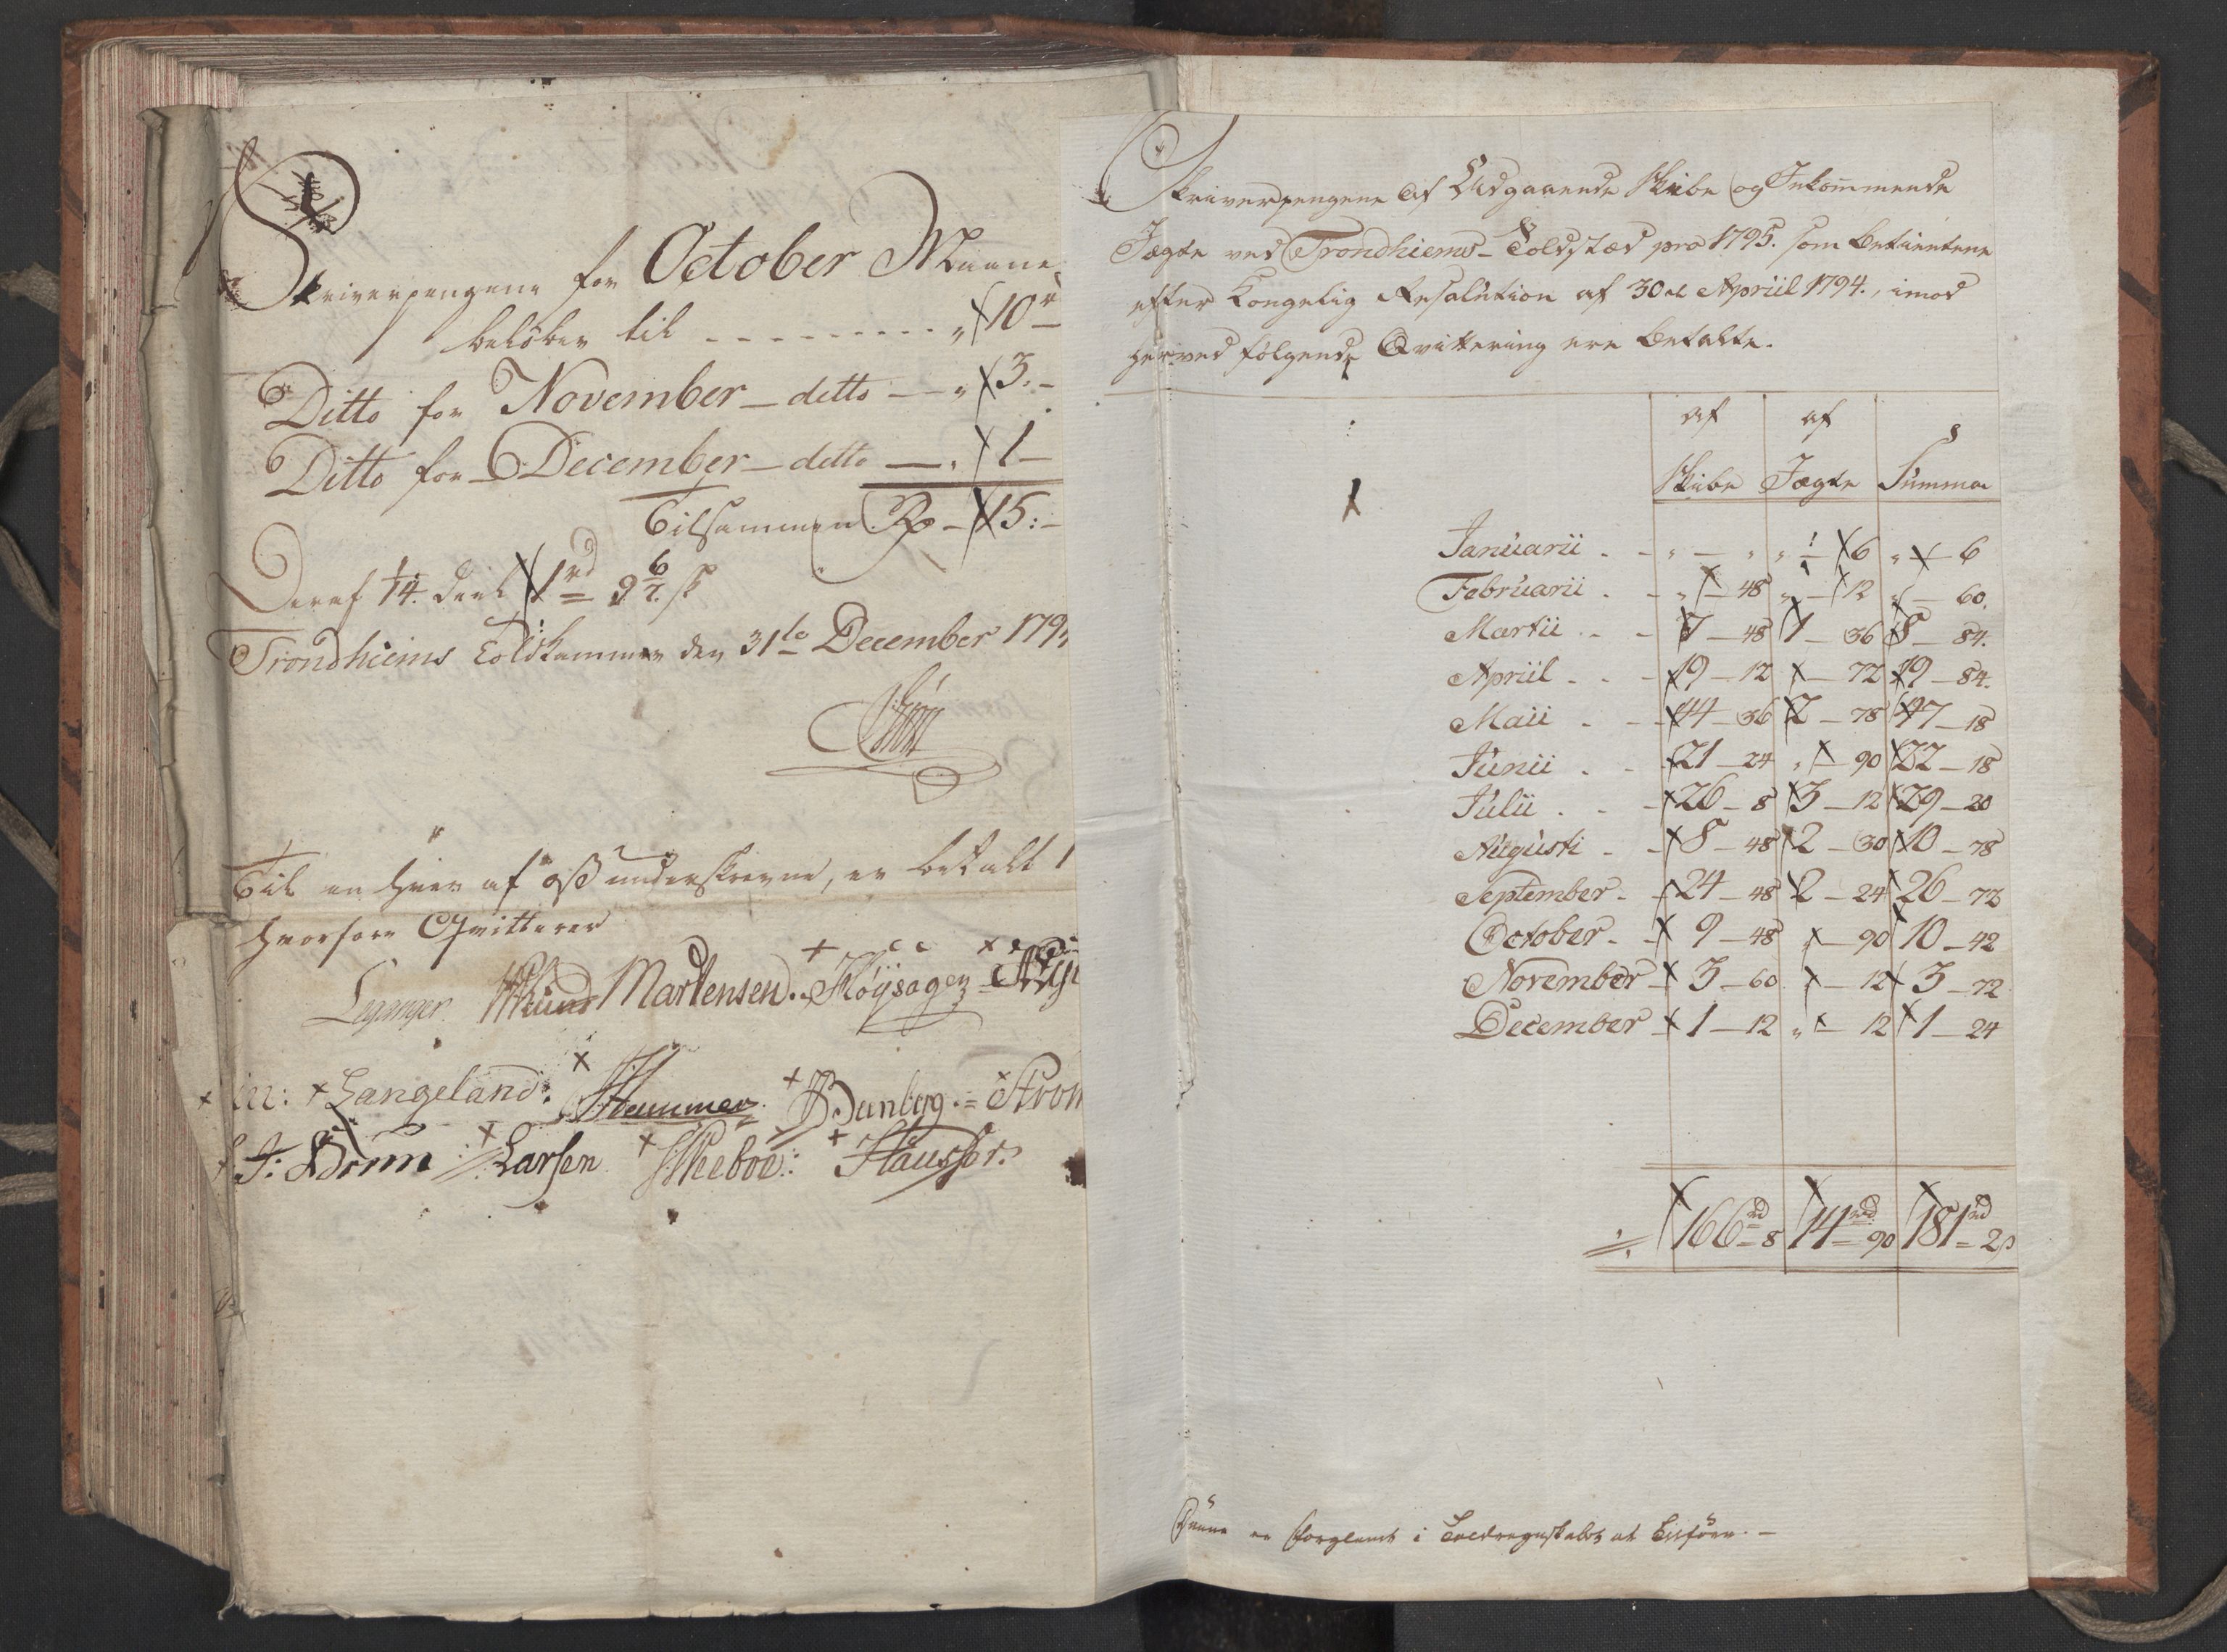 Skriverpengene for October Maane
beløber til - - - - - - - - - „ 10 r
Ditto for November – ditto — „ 3. –
Ditto for December – ditto — „ 1 –
Tilsammen Rd – 15: –
Deraf 14. Deel 1 rd 9 6/7. s
Trondhiems Toldkammer den 31te December 179
Til en hver af oss underskrevne, er betalt 1
hvorfore Qvitterer
Leganger. Wund Martensen. Høysagen
Langeland: Hammer. Bunberg. = Strom
J: Brun Larsen. Skeboe: Hausser:
Skriverpengene af Udgaaende Skibe og Inkommende
Jægte ved Trondhiems Toldsted pro 1795. som Betientene
efter Kongelig Resolution af 30te Apriil 1794., imod
herved følgende Qvittering ere betalte.
af af
Skibe Jægte Summa
Januarii . - „ — „ „ — 6 „ — 6
Februarii . - „ — 48 „ — 12 „ — 60.
Martii . - 7 — 48 1 — 36 8 — 84.
Apriil . - 19 — 12 — 72 19 — 84.
Maii . - 44 — 36 2 — 78 47 — 18
Junii . - 21 — 24 „ — 90 22 — 18
Julii . - 26 — 8 3 — 12 29 — 20
Augusti - 8 — 48 2 — 30 10 — 78
September - 24 — 48 2 — 24 26 — 72
October - 9 — 48 „ — 90 10 — 42
November - 3 — 60 — 12 3 — 72
December - 1 — 12 „ — 12 1 — 24
166 rd 8 14 rd 90 181 rd 2
Denne er forglemt i Toldregnskabet at tilføre. —